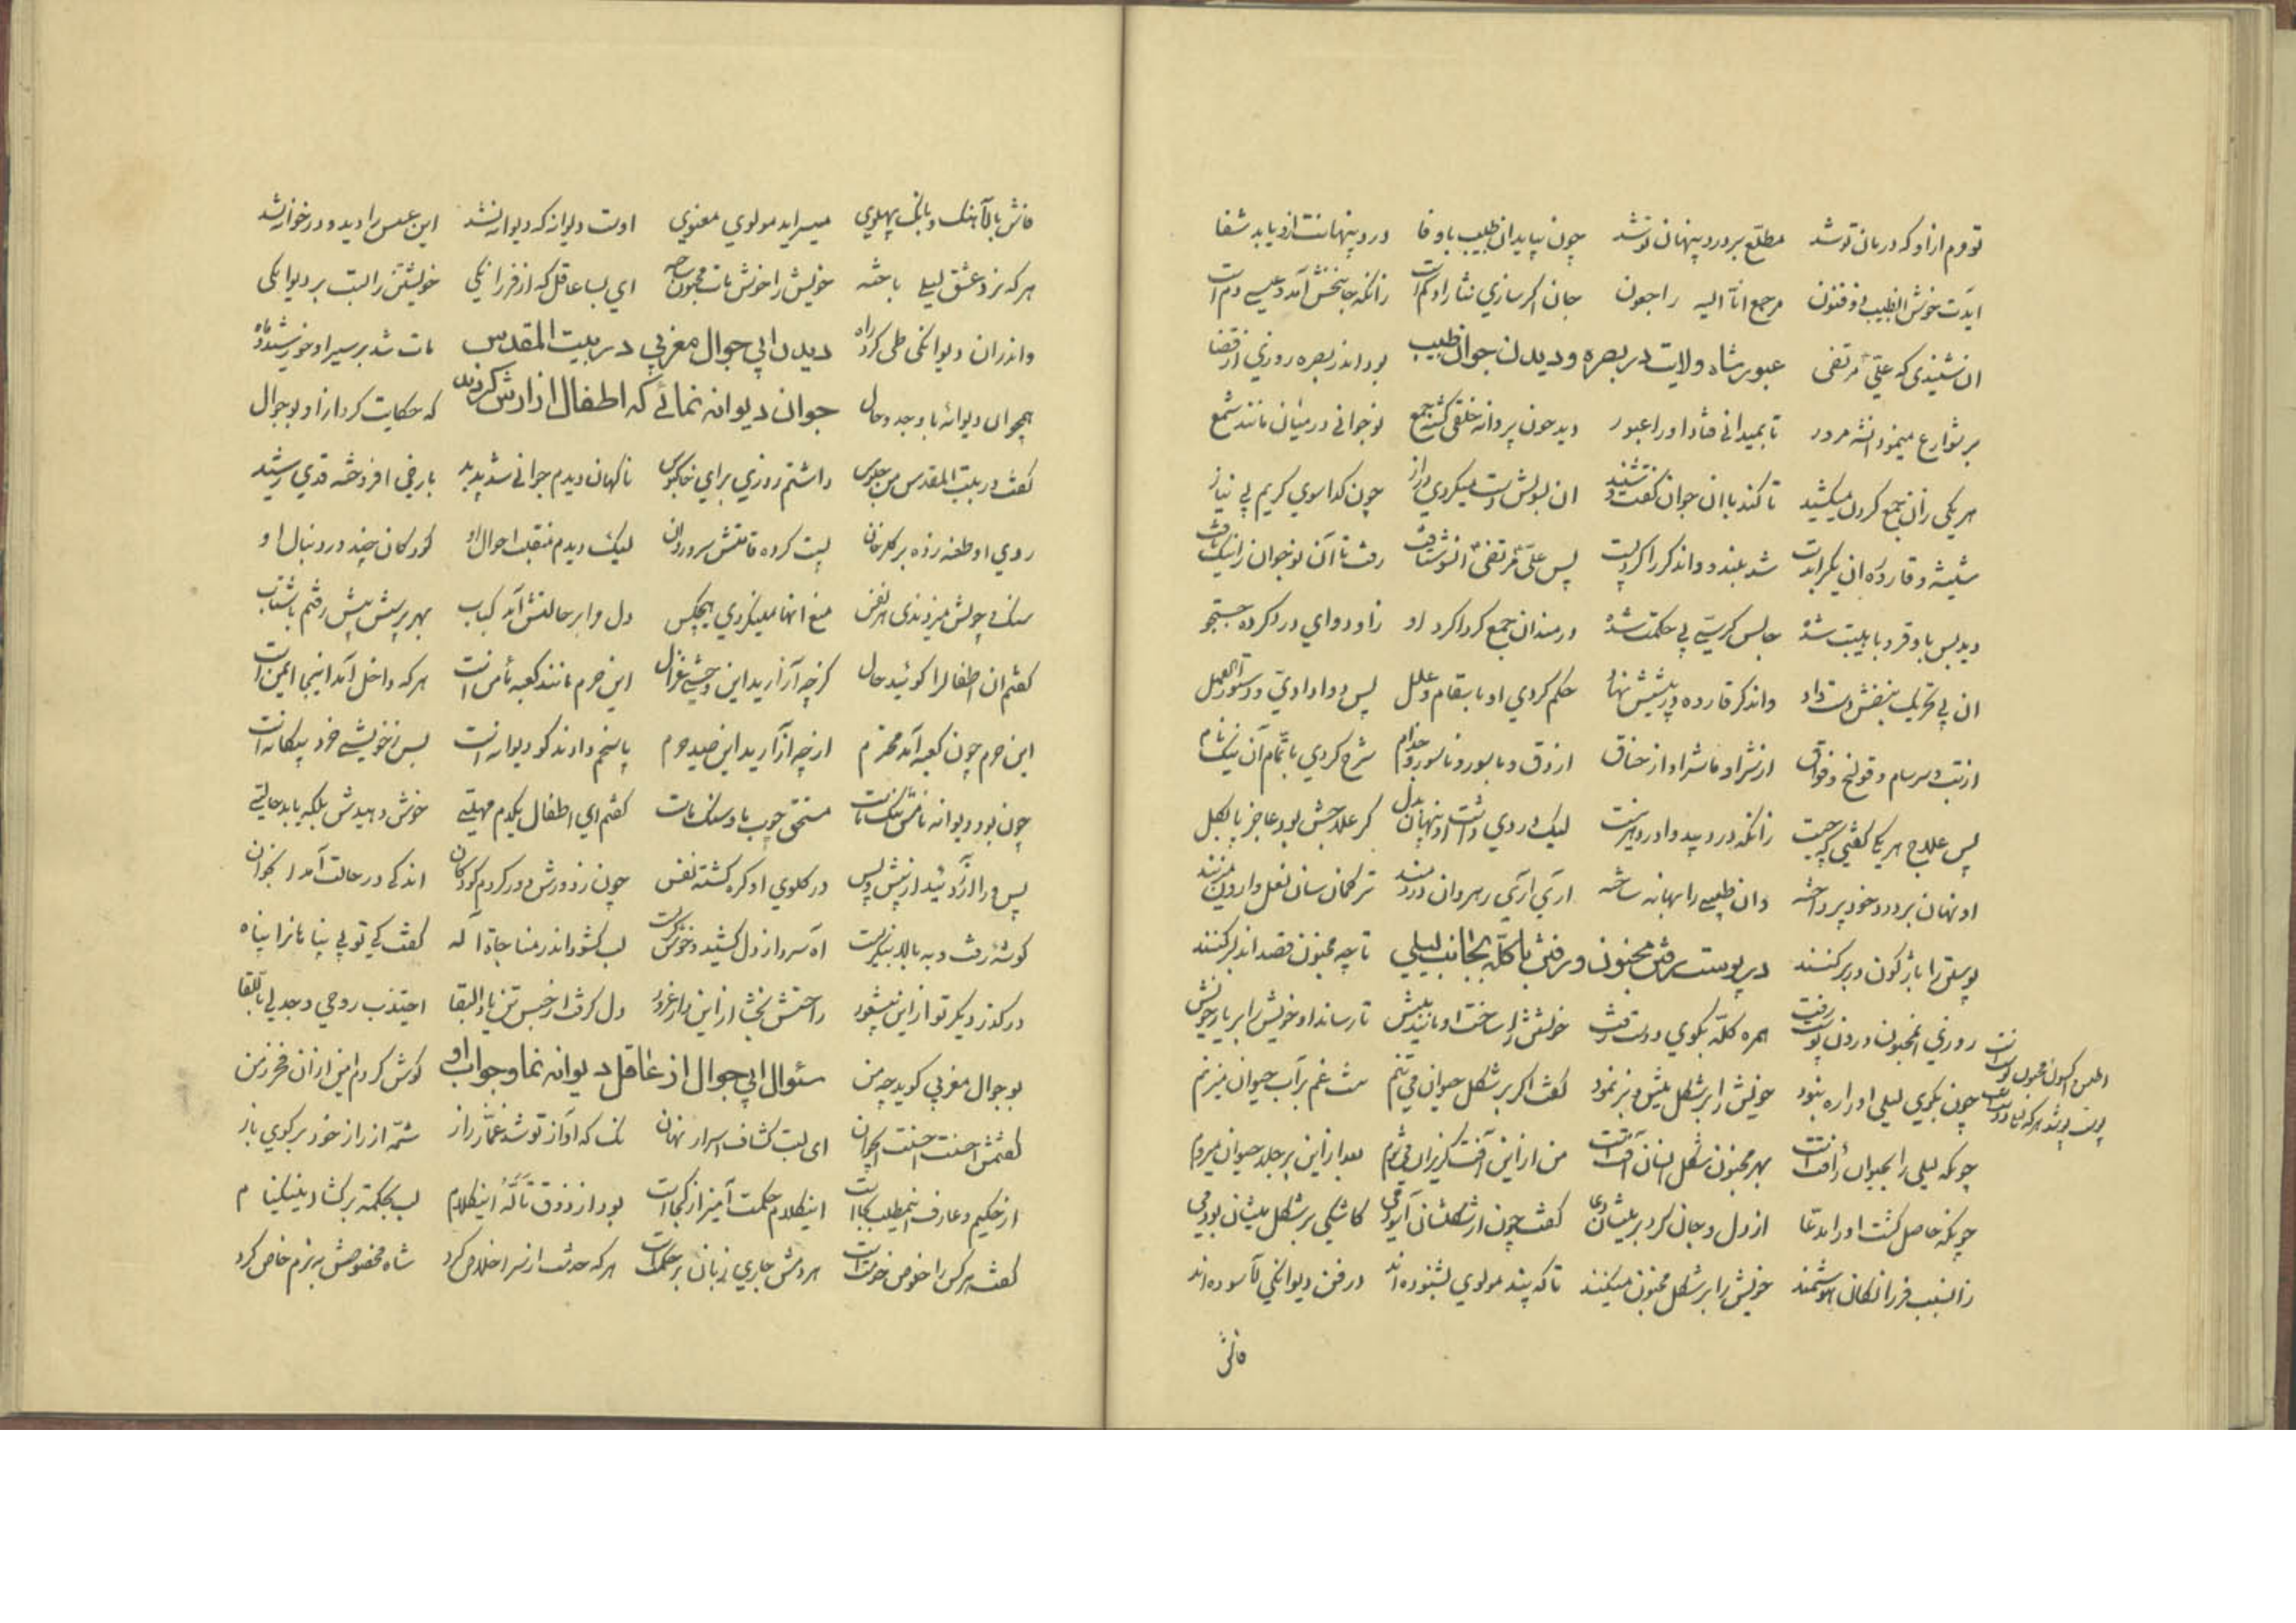 تو دوم از او که درمان تو شد مطلع بر درد پنهان تو شد چون بیاید ان طبیب باوفا درد پنهانت ازو یابد شفا
ایدت خوش الطبیب ذوفنون مرجع انا الیه راجعون جان اگر سازی نثار او کم است زانکه جانبخش آمد و عیسی دم است
ان شنیدی که علی مرتضی عبور شاه ولایت در بصره و دیدن جوان طبیب بود اندر بصره روزی از قضا
بر شوارع مینمود انشه مرور تا بمیدانی فتاد او را عبور دید چون پروانه خلقی گشته جمع نوجوانی در میان مانند شمع
هر یکی زان جمع گردن میکشید تا کند با ان جوان گفت و شنید ان بسویش دست میکردی دراز چون گدا سوی کریم بی نیاز
شیشه و قاروره ان یکرا بدست شد بلند و و اندگر را گرد پست پس علی مرتضی انسو شتافت رفت تا آن نوجوان را نیک یافت
دید بس با وقر و با هیبت شده جالس کرسی پی حکمت شده درمندان جمع گرداگرد او زاو دوای درد کرده جستجو
ان پی تحریک نبضش دست داد واندگر قاروره در پیشش نهاد حکم کردی او باسقام و علل پس دوا دادی و دستور العمل
از تب و سرسام و قولنج و فواق از شرا و ماشرا و از خناق از دق و باسور و ناسور و جذام شرح کردی با تمام آن نیک نام
پس علاج هر یکی گفتی که چیست زانکه درد بیدوا در دهر نیست لیک دردی داشت او پنهان بدل کز علاجش بود عاجز پا بگل
او نهان بر درد خود پرداخته وان طبیبی را بهانه ساخته آری آری رهروان دردمند ترکمان سان نعل وارون میزنند
پوستی را باژگون در بر کنند در پوست رفتن مجنون و رفتن با گله بجانب لیلی تا چه مجنون قصد اندلبر کنند
روزی انمجنون درون پوست رفت همره گله بکوی دوست رفت خویش را ساخت او مانند میش تا رساند او خویش را بر یار خویش
چون بکوی لیلی او را ره نبود خویش را بر شکل میش و بز نمود گفت اگر بر شکل حیوان می تنم شد غم بر آب حیوان میزنم
چونکه لیلی را بحیوان رأفت است بهر مجنون شکل انسان آفت است من از این آفت گریزان میشوم بعد از این بر جلد حیوان میروم
چونکه حاصل گشت او را مدعا از دل و جان کرد بر میشان دعا گفت چون از شکلشان آسودمی کاشکی بر شکل میشان بودمی
زانسبب فرزانگان هوشمند خویش را بر شکل مجنون میکنند تا که پند مولوی بشنوده اند در فن دیوانگی آسوده اند
فاش
فاش با آهنگ و بانگ پهلوی میسراید مولوی معنوی اوست دیوانه که دیوانه نشد این عسس را دید و در خوانه شد
هر که نرد عشق لیلی باخته خویش را خوش مات مجنون ساخته ای بسا عاقل که از فرزانگی خویشتن را بست بر دیوانگی
واندران دیوانگی طی کرد راه دیدن ابی جوال مغربی در بیت المقدس مات شد بر سیر او خورشید و ماه
همچو ان دیوانۀ با وجد و حال جوان دیوانه نمائی که اطفال ازارش کردند که حکایت کرد از او بو جوال
گفت در بیت المقدس من جلوس داشتم روزی برای خاکبوس ناگهان دیدم جوانی شد پدید با رخی افروخته قدی رشید
روی او طعنه زده بر گلرخان پست کرده قامتش سرو روان لیک دیدم منقلب احوال او کودکان چند در دنبال او
سنگ و چوبش میزدندی هر نفس منع انها مینکردی هیچکس دل مرا بر حالتش آمد کباب بهر پرسش پیش رفتم با شتاب
گفتم ان اطفال را گوئید حال کز چه آزارید این وحشی غزال این حرم مانند کعبه مأمن است هر که داخل آمد اینجا ایمن است
این حرم چون کعبه آمد محترم از چه آزارید این صید حرم پاسخم دادند کو دیوانه است بس ز خویشی خرد بیگانه است
چون بود دیوانه نامش ننگ ماست مستحق چوب ما و سنگ ماست گفتم ای اطفال یکدم مهلتی خوش دهیدش بلکه یابد حالتی
پس ورا آزردنید از پیش و پس در گلوی او گره گشته نفس چون زدورش دور کردم کودکان اندکی در حالت آمد انجوان
گوشۀ رفت و به بالا بنگریست آه سرد از دل کشید و خوش گریست لب گشود اندر مناجات اله گفت کی تو بی پناهانرا پناه
درگذر دیگر تو از این بیشعور راحتش بخش از این دار غرور دل گرفت از حبس تن یا ذا البقا اجتذب روحی وجد لی باللقا
بو جوال مغربی گوید چو من سئوال ابی جوال از عاقل دیوانه نما و جواب او گوش کردم این از ان فخر زمن
گفتمش احسنت احسنت ایجوان ای لبت کشاف اسرار نهان نک که آواز تو شد غماز راز شمۀ از راز خود بر گوی باز
از حکیم و عارف اینمطلب کجاست اینکلام حکمت آمیز از کجاست بود از ذوق تأله اینکلام لب بحکمت بر گشاد
گفت هر کس را خلوص خدمت است هر دمش جاری زبان بر حکمت است هر که خدمت از سر اخلاص کرد شاه مخصوصش به بزم خاص کرد